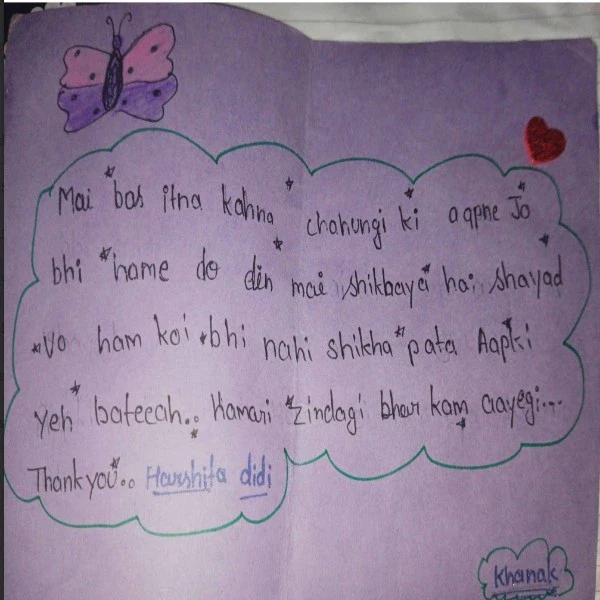 Mai bas itna kahna chahungi ki aapne Jo
bhi hame do din mai shikhaya hai shayad
vo ham koi bhi nahi shikha pata Aapki
yeh bateeah.. Hamari zindagi bhar kam aayegi...
Thankyou.. Harshita didi
Khanak